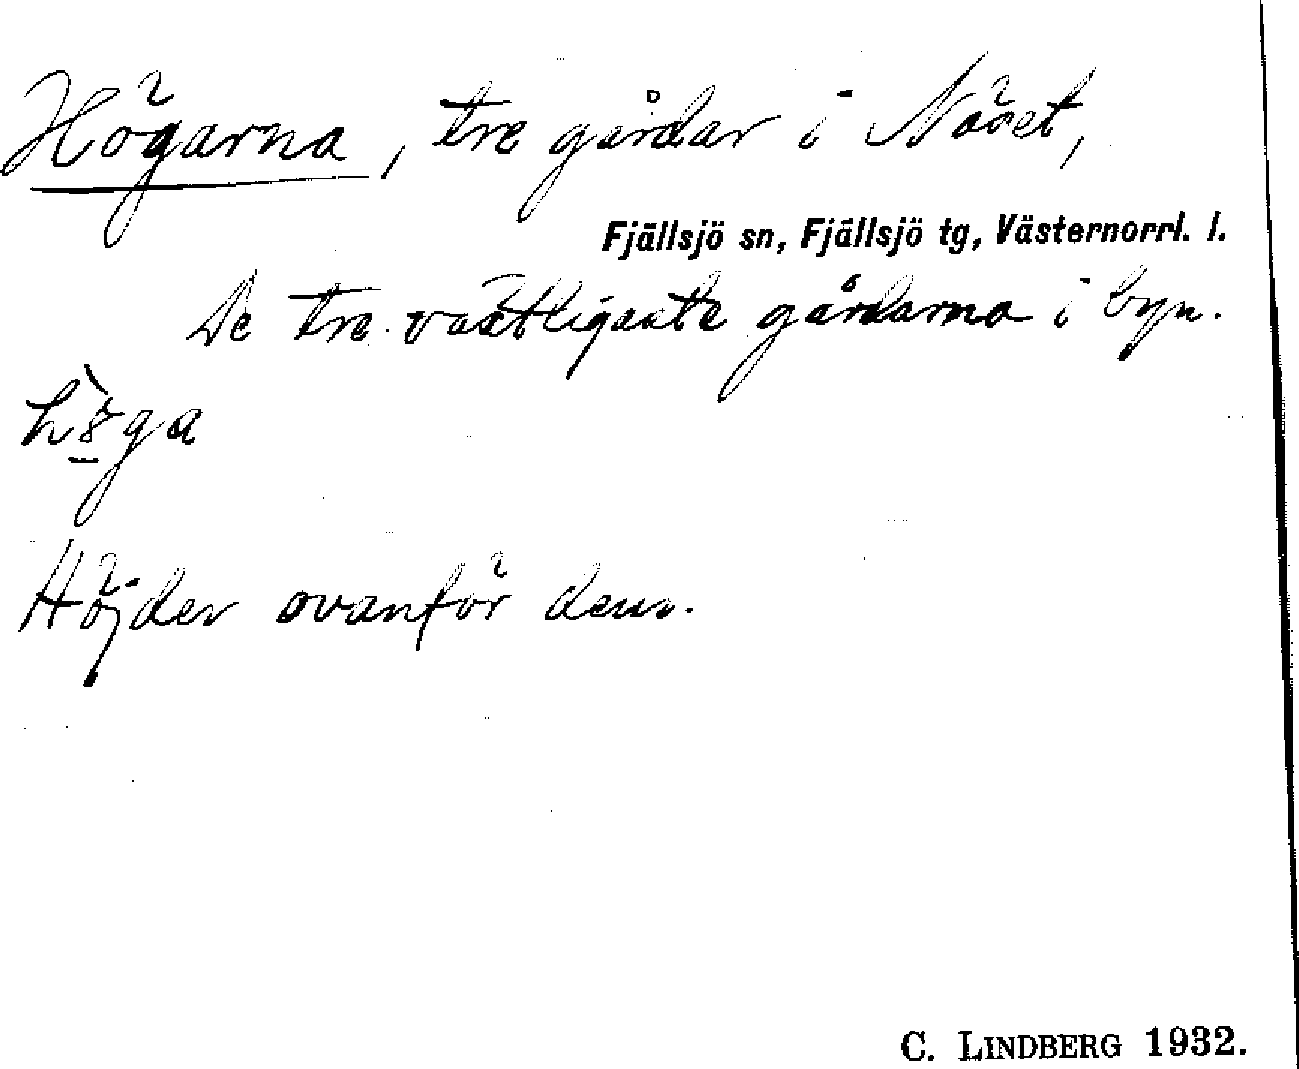 Högarna, tre gårdar i Näset,
Fjällsjö sn, Fjällsjö tg, Västernorrl. l.
De tre västligaste gårdarna i byn.
Höjder ovanför dem.
C. LINDBERG 1932.